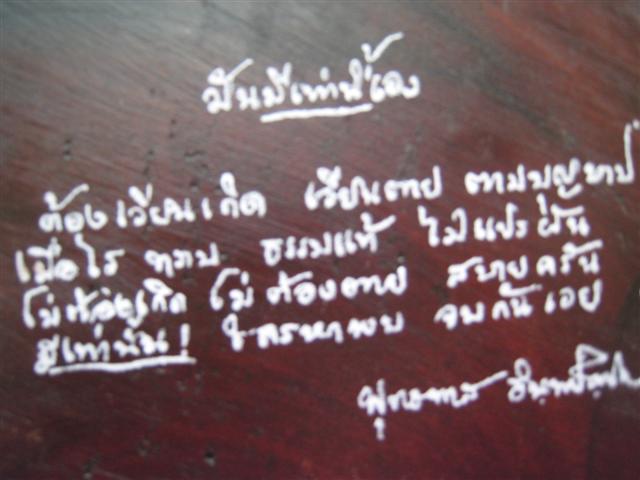 มันมีเท่านี้เอง
ต้องเวียนเกิด เวียนตาย ตามบุญบาป
เมื่อไร ทราบ ธรรมแท้ ไม่แปรผัน
ไม่ต้องเกิด ไม่ต้องตาย สบายครัน
มีเท่านั้น! ใครหาพบ จบกันเอย
พุทธทาส อินทปัญโญ